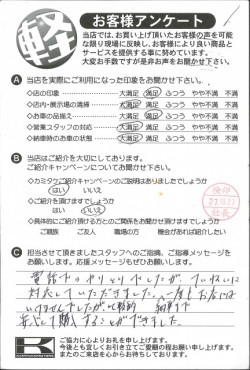 軽
お客様アンケート
当店では、お買い上げ頂いたお客様の声を可能
な限り現場に反映し、お客様により良い商品と
サービスを提供する事に努めています。
大変お手数ですが是非お声をお聞かせ下さい。
A 当店を実際にご利用になった印象をお聞かせ下さい。
◇店の印象 大満足 満足 ふつう やや不満 不満
◇店内・展示場の清掃 大満足 満足 ふつう やや不満 不満
◇お車の品揃え 大満足 満足 ふつう やや不満 不満
◇営業スタッフの対応 大満足 満足 ふつう やや不満 不満
◇納車時のお車の状態 大満足 満足 ふつう やや不満 不満
B 当店はご紹介を大切にしております。
ご紹介キャンペーンについてお聞かせ下さい。
◇カミタケご紹介キャンペーンのご説明はありましたでしょうか
はい いいえ
◇ご紹介を頂けますでしょうか
はい いいえ
◇具体的にご紹介頂ける方とのご関係をお聞かせ頂けますでしょうか
ご親族 ご友人 職場の方 機会があれば紹介したい
検印
C 担当させて頂きましたスタッフへのご指摘、ご指導メッセージを
お願いします。応援メッセージもぜひお願いします。
電話でのやりとりでしたが、ていねいに
対応していただきました。一度もお店には
安心して購入することができました。
K
ご協力に心よりお礼を申し上げます。
今後とも宜しくお引き立てご愛顧の程お願い申し上げます。
またのご来店を心からお待ちしております。